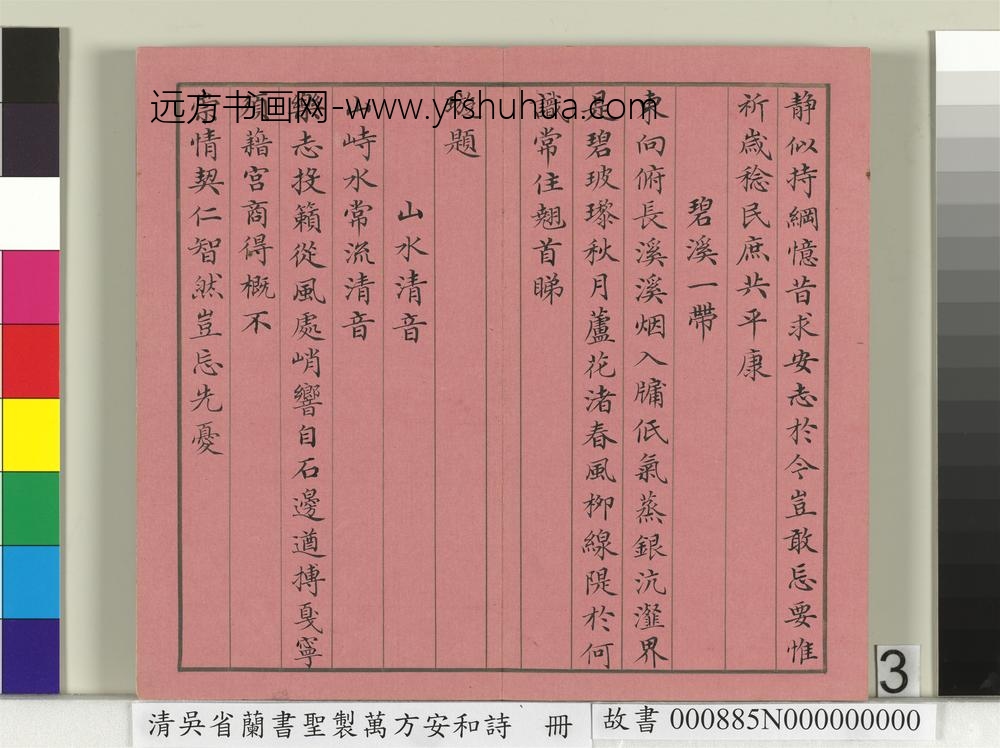 静似持綱憶昔求安志於今豈敢忘要惟
祈歲稔民庶共平康
碧溪一帶
東向俯長溪溪烟入牖低氣蒸銀沆瀣界
碧玻瓈秋月蘆花渚春風栁線隄於何
常住翹首睇
題
山水清音
峙水常流清音
志投籟從風處峭響自石邊遒搏戛寧
藉宮商得概不
情契仁智然豈忘先憂
远方书画网-www.yfshuhua.com
3
清吳省蘭書聖製萬方安和詩 冊
故書 000885N000000000